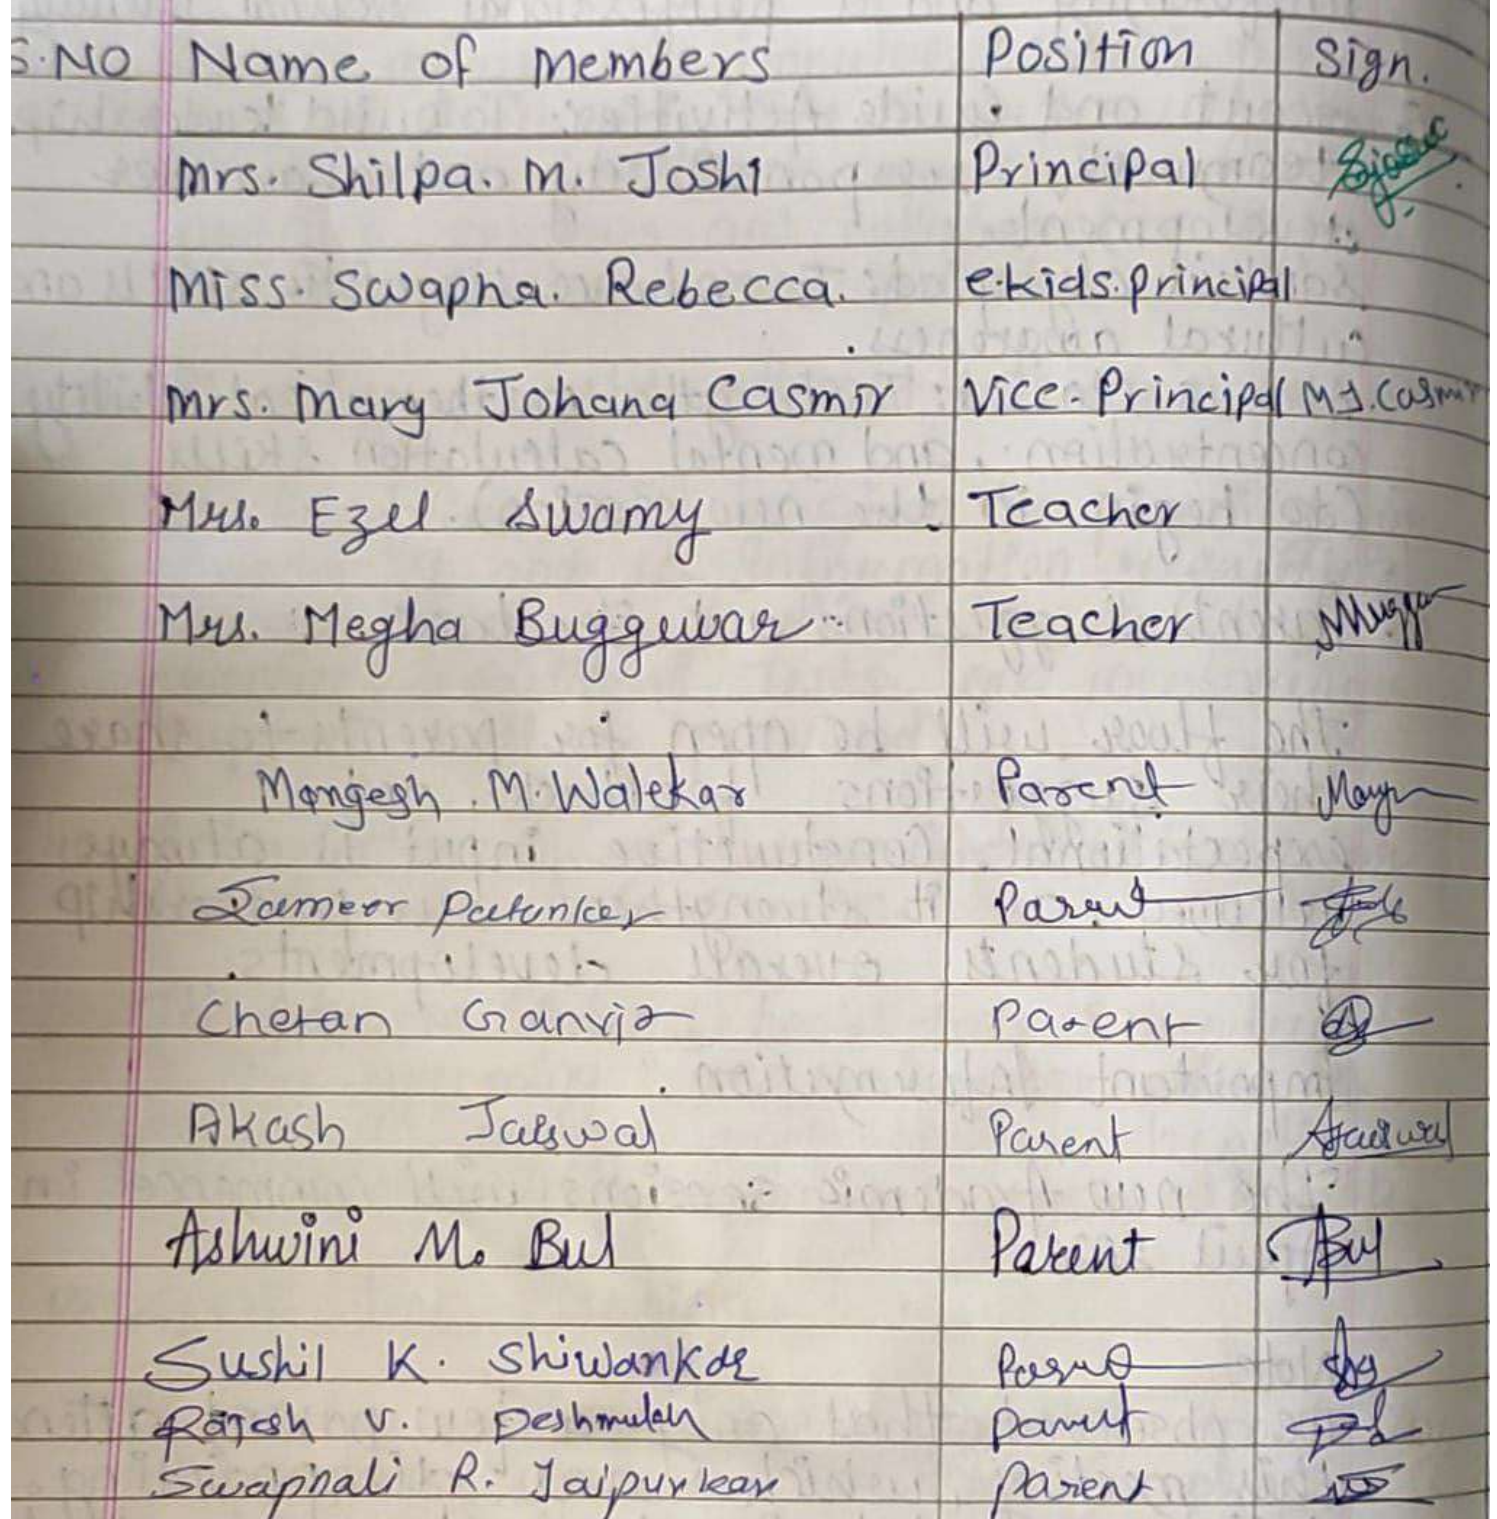 S.NO Name of members Position Sign.
Mrs. Shilpa. M. Joshi Principal
Miss. Swapna. Rebecca. e.kids.principal
Mrs. Mary Johana Casmir Vice-Principal M J.Casmir
Mrs. Ezel Swamy Teacher
Mrs. Megha Bugguwar Teacher
Mangesh M. Walekar Parent
Sameer Patankar Parent
Chetan Ganvir Parent
Akash Jaiswal Parent AJaiswal
Ashwini M. Bul Parent ABul
Sushil K. Shiwankar Parent
Rajesh V. Deshmukh Parent
Swapnali R. Jaipurkar Parent